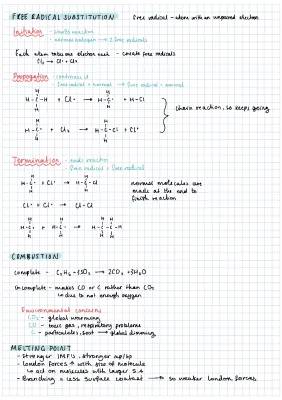 FREE RADICAL SUBSTITUTION Free radical - atom with an unpaired electron
Initiation - starts reaction
- normal halogen → 2 free radicals
Each atom takes one electron each - create free radicals
Cl₂ → Cl• + Cl•
Propagation - continues it
- free radical + normal → free radical + normal
H
H-C-H + Cl• → H-C• + H-Cl
H
chain reaction, so keeps going
H
H-C• + Cl₂ → H-C-Cl + Cl•
H
Termination - ends reaction
- free radical + free radical
H
H-C• + Cl• → H-C-Cl
H
normal molecules are
made at the end to
finish reaction
Cl• + Cl• → Cl-Cl
H H H H
H-C• + H-C• → H-C-C-H
H H H H
COMBUSTION
Complete - → 2CO₂ + 3H₂O
Incomplete - makes CO or C rather than CO₂
↳ due to not enough oxygen
Environmental concerns
CO₂ - global warming
CO - toxic gas, respiratory problems
C - particulates, soot → global dimming
MELTING POINT
- Stronger IMFs, stronger mp/bp
- London forces ↑ with size of molecule
↳ so molecules with larger S.A
- Branching = less surface contact → so weaker London forces